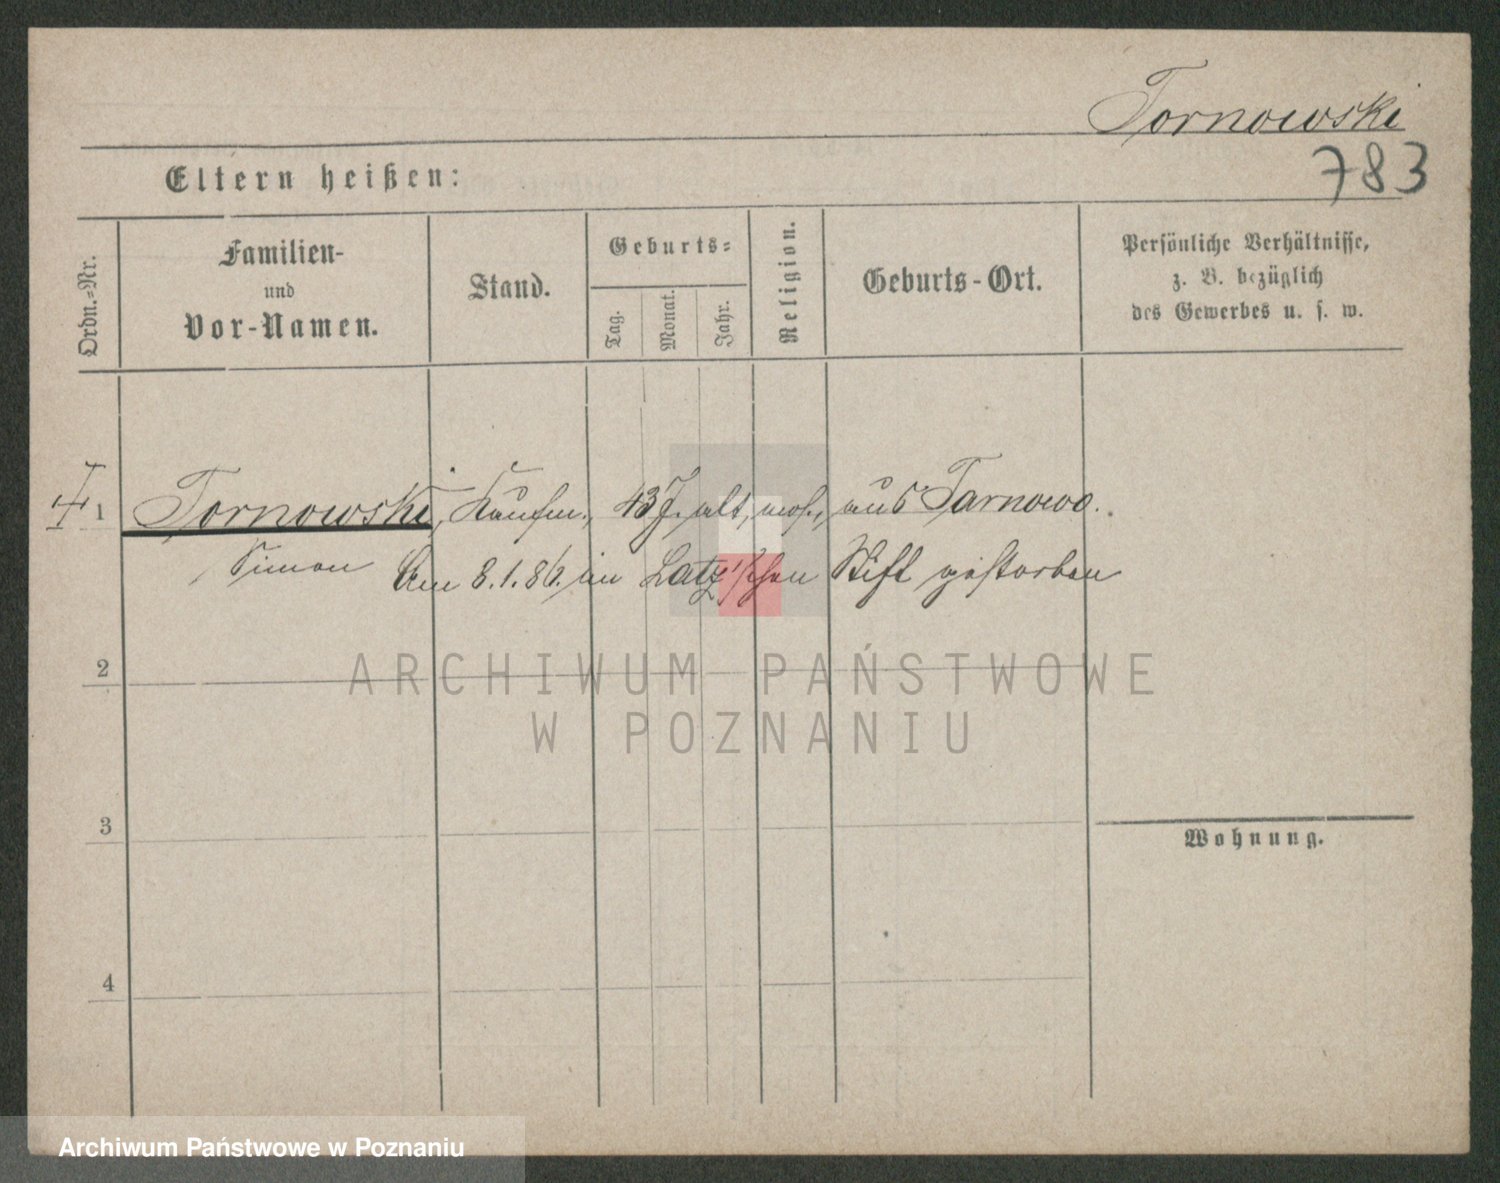 Tornowski
783
Eltern heißen:
Ordn.-Nr.
Familien-
und
Vor-Namen.
Stand.
Geburts-
Tag.
Monat.
Jahr.
Religion.
Geburts-Ort.
Persönliche Verhältnisse,
z. B. bezüglich
des Gewerbes u. s. w.
1 Tornowski, Kaufm., 43 J. alt, mos., aus Tarnowo.
Simon Am 8.1.86. im Latz'schen Stift gestorben
2
ARCHIWUM PAŃSTWOWE
W POZNANIU
3
Wohnung.
4
Archiwum Państwowe w Poznaniu